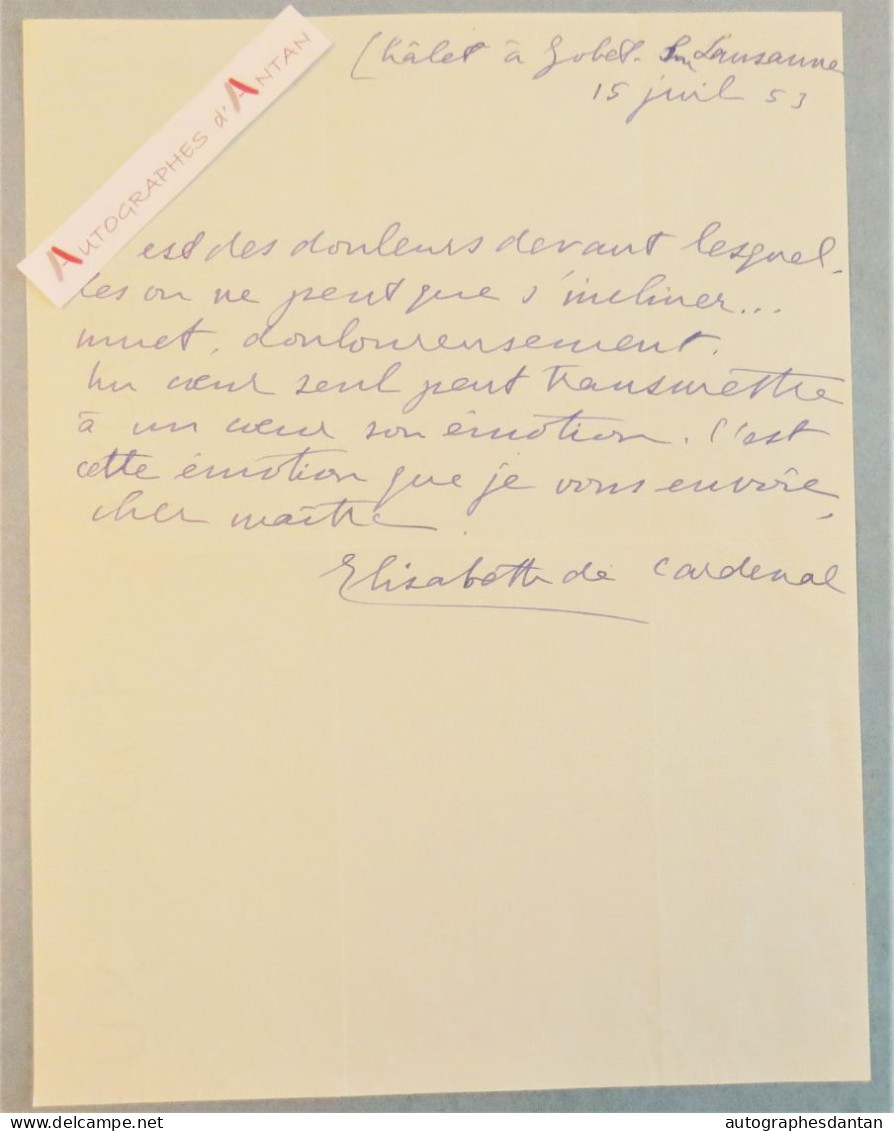 AUTOGRAPHES d'ANTAN
Châlet à Gobet. Sur Lausanne
15 juil 53
est des douleurs devant lesquel-
les on ne peut que s'incliner...
muet, douloureusement.
Un cœur seul peut transmettre
à un cœur son émotion. C'est
cette émotion que je vous envoie,
cher maître.
Elisabeth de Cardenal
www.delcampe.net
autographesdantan